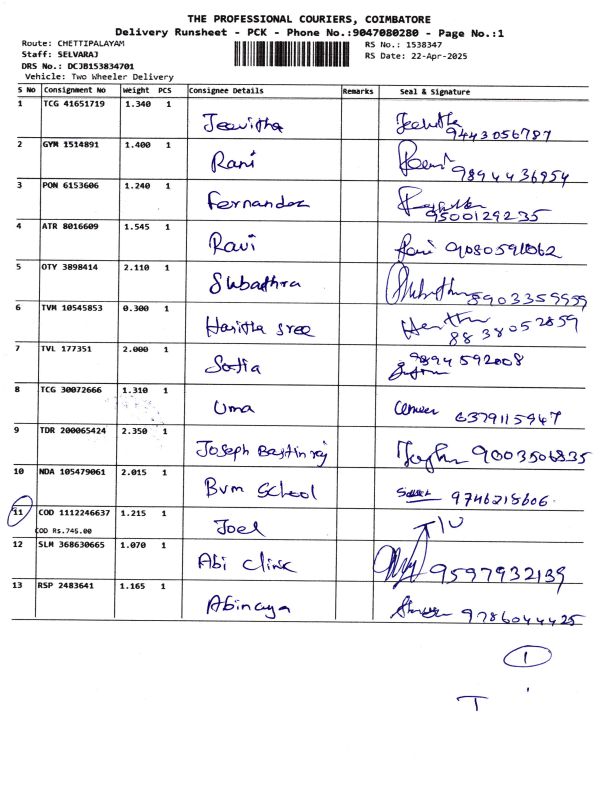 THE PROFESSIONAL COURIERS, COIMBATORE
Delivery Runsheet - PCK - Phone No.:9047080280 - Page No.:1
Route: CHETTIPALAYAM RS No.: 1538347
Staff: SELVARAJ RS Date: 22-Apr-2025
DRS No.: DCJB153834701
Vehicle: Two Wheeler Delivery
S No Consignment No Weight PCS Consignee Details Remarks Seal & Signature
1 TCG 41651719 1.340 1 Jeevitha 9443056787
2 GYM 1514891 1.400 1 Rani 9894436954
3 PON 6153606 1.240 1 Fernandez 9500129235
4 ATR 8016609 1.545 1 Ravi
5 OTY 3898414 2.110 1 Subathra 8903359959
6 TVM 10545853 0.300 1 Haritha sree 8838052859
7 TVL 177351 2.000 1 Sofia 9894592008
8 TCG 30072666 1.310 1 Uma 6379115947
9 TDR 200065424 2.350 1 Joseph Bastin raj 9003506835
10 NDA 105479061 2.015 1 Bvm School 9746218606
11 COD 1112246637 1.215 1 Joel
COD Rs.745.00
12 SLM 368630665 1.070 1 Abi Clinic 9597932139
13 RSP 2483641 1.165 1 Abinaya 9786044425
1
T